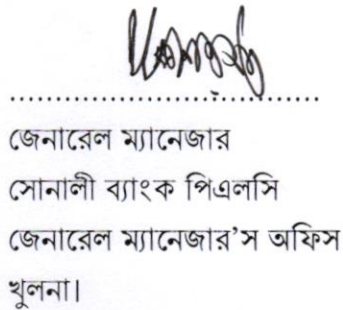 জেনারেল ম্যানেজার
সোনালী ব্যাংক পিএলসি
জেনারেল ম্যানেজার’স অফিস
খুলনা।